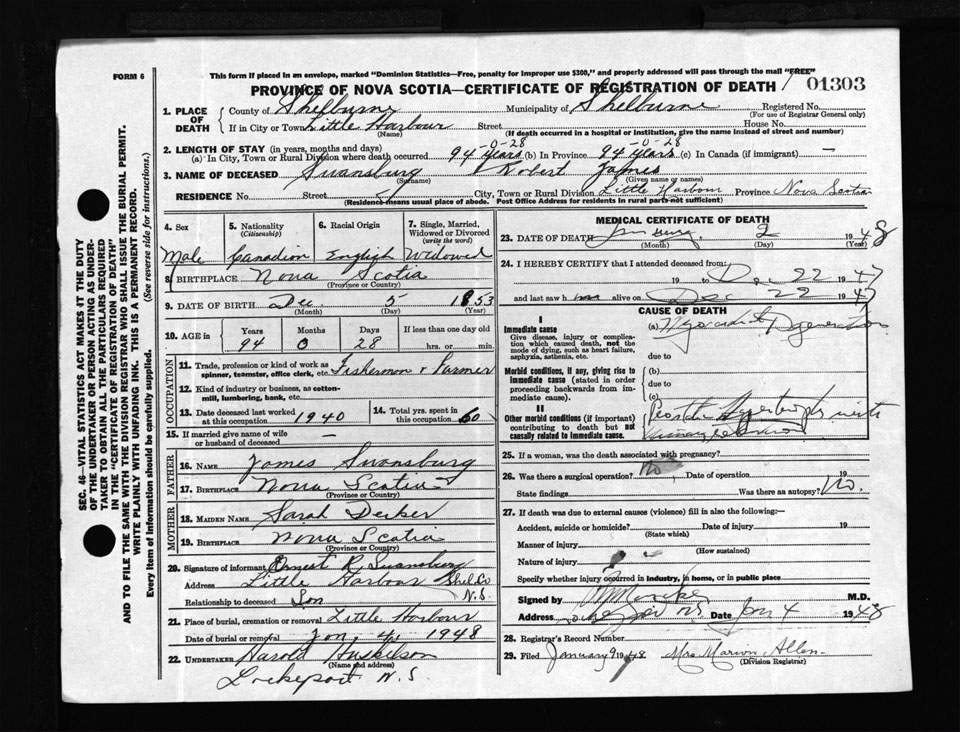 FORM 6
This form if placed in an envelope, marked "Dominion Statistics—Free, penalty for improper use $300," and properly addressed will pass through the mail "FREE"
PROVINCE OF NOVA SCOTIA—CERTIFICATE OF REGISTRATION OF DEATH 01303
1. PLACE OF DEATH
County of Shelburne Municipality of Shelburne Registered No.
(For use of Registrar General only)
If in City or Town Little Harbour Street House No.
(Name) (If death occurred in a hospital or institution, give the name instead of street and number)
2. LENGTH OF STAY (in years, months and days)
(a) In City, Town or Rural Division where death occurred 94 years-0-28 (b) In Province 94 years-0-28 (c) In Canada (if immigrant) —
3. NAME OF DECEASED Swansburg Robert James
(Surname) (Given name or names)
RESIDENCE No. Street City, Town or Rural Division Little Harbour Province Nova Scotia
(Residence means usual place of abode. Post Office Address for residents in rural parts not sufficient)
4. Sex
Male
5. Nationality
(Citizenship)
Canadian
6. Racial Origin
English
7. Single, Married, Widowed or Divorced
(write the word)
Widowed
8. BIRTHPLACE Nova Scotia
(Province or Country)
9. DATE OF BIRTH Dec 5 1853
(Month) (Day) (Year)
10. AGE in Years Months Days If less than one day old
94 0 28 hrs. or min.
OCCUPATION
11. Trade, profession or kind of work as spinner, teamster, office clerk, etc. Fisherman & Farmer
12. Kind of industry or business, as cotton-mill, lumbering, bank, etc.
13. Date deceased last worked at this occupation 1940
14. Total yrs. spent in this occupation 60
15. If married give name of wife or husband of deceased —
FATHER
16. NAME James Swansburg
17. BIRTHPLACE Nova Scotia
(Province or Country)
MOTHER
18. MAIDEN NAME Sarah Decker
19. BIRTHPLACE Nova Scotia
(Province or Country)
20. Signature of informant Ernest R. Swansburg
Address Little Harbour Shel. Co N.S.
Relationship to deceased Son
21. Place of burial, cremation or removal Little Harbour
Date of burial or removal Jan. 4, 1948
22. UNDERTAKER Harold Huskilson
(Name and address)
Lockeport N.S
MEDICAL CERTIFICATE OF DEATH
23. DATE OF DEATH January 2 1948
(Month) (Day) (Year)
24. I HEREBY CERTIFY that I attended deceased from:
19 to Dec 22 1947
and last saw him alive on Dec 22 1947
CAUSE OF DEATH
I
Immediate cause
Give disease, injury or complication which caused death, not the mode of dying, such as heart failure, asphyxia, asthenia, etc.
(a) Myocardial Degeneration
due to
Morbid conditions, if any, giving rise to immediate cause (stated in order proceeding backwards from immediate cause).
(b)
due to
(c)
II
Other morbid conditions (if important) contributing to death but not causally related to immediate cause.
Prostatic Hypertrophy with Urinary Retention
25. If a woman, was the death associated with pregnancy?
26. Was there a surgical operation? No Date of operation 19
State findings Was there an autopsy? No.
27. If death was due to external causes (violence) fill in also the following:—
Accident, suicide or homicide? Date of injury 19
(State which)
Manner of injury
(How sustained)
Nature of injury
Specify whether injury occurred in industry, in home, or in public place
Signed by M.D.
Address N.S. Date Jan 4 1948
28. Registrar's Record Number
29. Filed January 9 1948 Mrs. Marion Allen
(Division Registrar)
SEC. 46—VITAL STATISTICS ACT MAKES IT THE DUTY
OF THE UNDERTAKER OR PERSON ACTING AS UNDERTAKER TO OBTAIN ALL THE PARTICULARS REQUIRED
IN THE "CERTIFICATE OF REGISTRATION OF DEATH"
AND TO FILE THE SAME WITH THE DIVISION REGISTRAR WHO SHALL ISSUE THE BURIAL PERMIT.
WRITE PLAINLY WITH UNFADING INK. THIS IS A PERMANENT RECORD.
Every item of information should be carefully supplied. (See reverse side for instructions.)